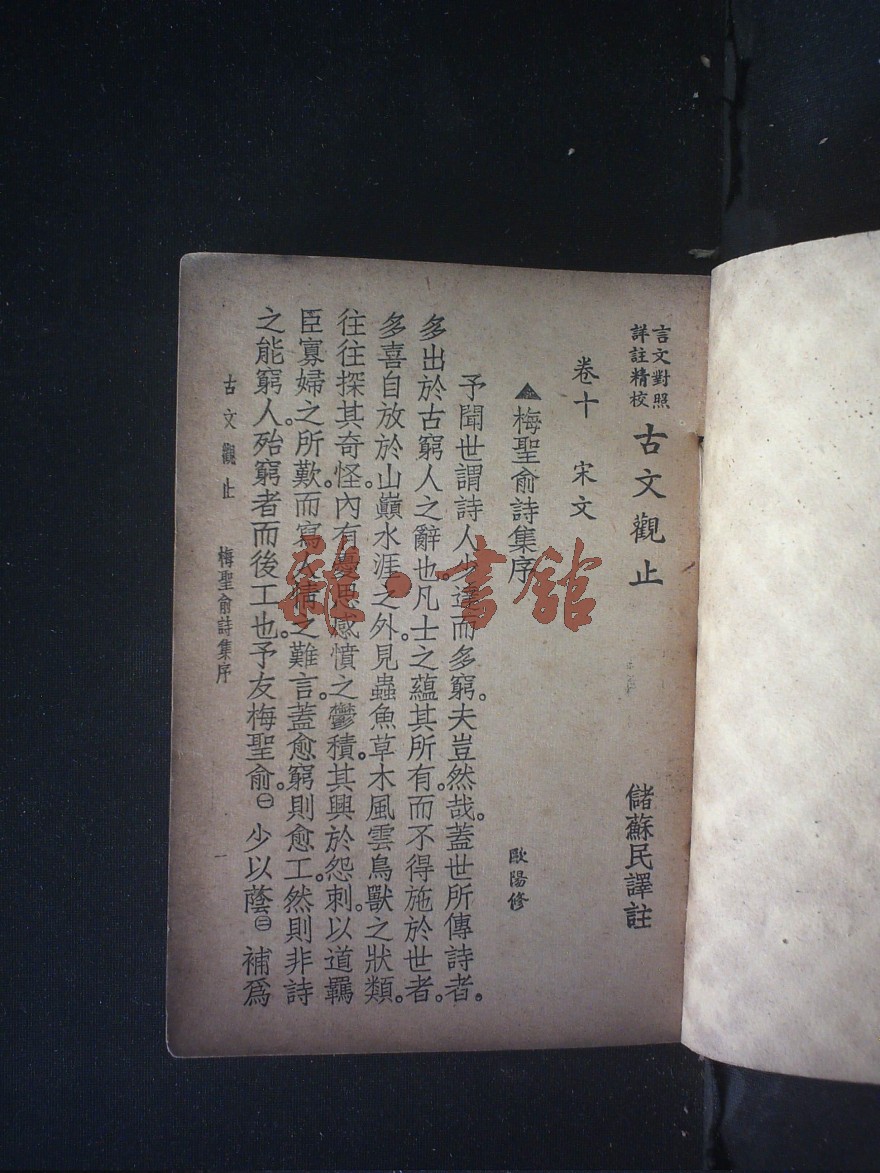 言文對照
詳註精校
古文觀止
儲蘇民譯註
卷十 宋文
▲梅聖俞詩集序
歐陽修
予聞世謂詩人少達而多窮。夫豈然哉。蓋世所傳詩者。
多出於古窮人之辭也。凡士之蘊其所有。而不得施於世者。
多喜自放於山巔水涯之外。見蟲魚草木風雲鳥獸之狀類。
往往探其奇怪。內有憂思感憤之鬱積。其興於怨刺。以道羈
臣寡婦之所歎。而寫人情之難言。蓋愈窮則愈工。然則非詩
之能窮人。殆窮者而後工也。予友梅聖俞。㊀少以蔭㊁補爲
古文觀止 梅聖俞詩集序 一
雜·書館